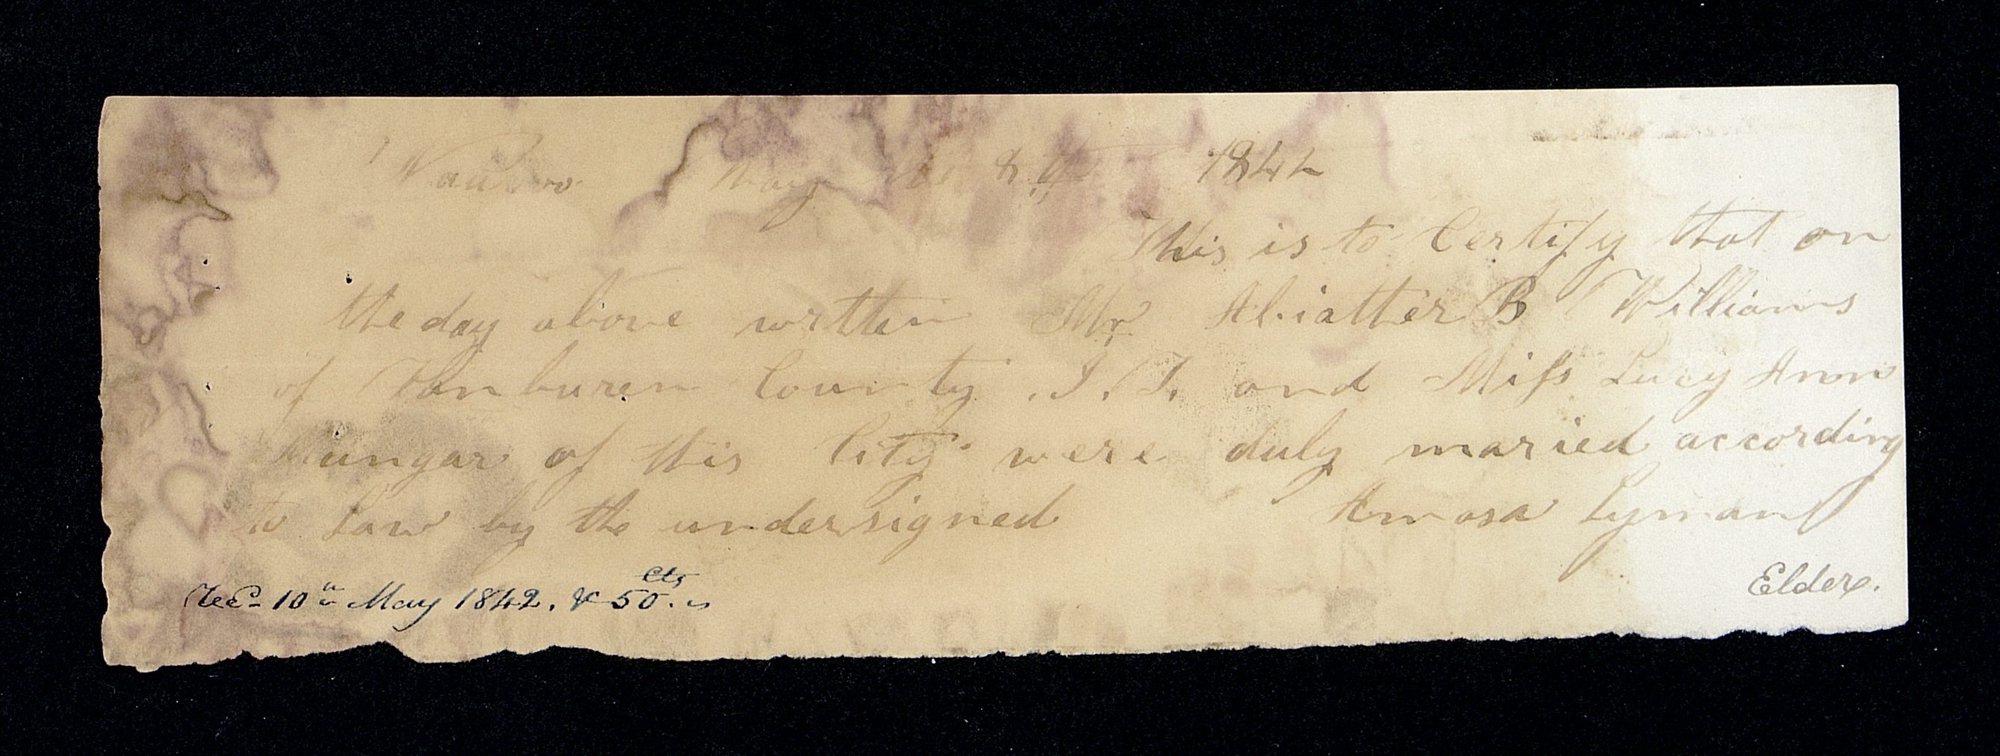 Nauvoo May the 8th 1842
This is to Certify that on
the day above written Mr Abiatter B Williams
of Van buren County .I.T. and Miss Lucy Ann
Mungar of this City were duly maried according
to Law by the undersigned Amasa Lyman
Elder.
Rec- 10th May 1842. & 50. cts